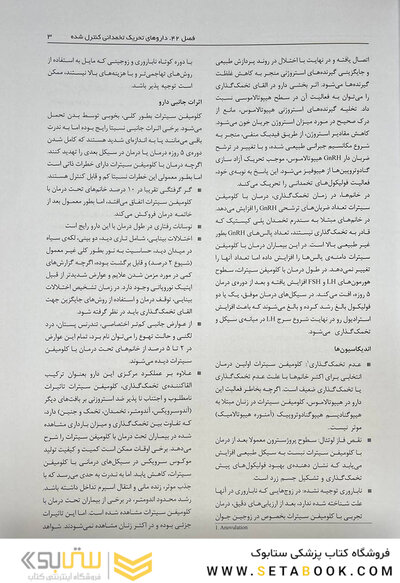 فصل ۴۲. داروهای تحریک تخمدانی کنترل شده
۳
اتصال یافته و در نهایت با اختلال در روند پردازش طبیعی
و جایگزینی گیرنده‌های استروژنی منجر به کاهش غلظت
گیرنده‌ها می‌شود. اثر بخشی دارو در القای تخمک‌گذاری
را می‌توان به فعالیت آن در سطح هیپوتالاموسی نسبت
داد. تخلیه گیرنده‌های استروژنی هیپوتالاموس مانع از
درک صحیح در مورد میزان استروژن جریان خون می‌شود.
کاهش مقادیر استروژن، از طریق فیدبک منفی، منجر به
شروع مکانیسم جبرانی طبیعی شده، و با تغییر در ترشح
ضربان دار GnRH هیپوتالاموس، موجب تحریک آزاد سازی
گنادوتروپین‌ها از هیپوفیز می‌شود. این پاسخ به نوبه‌ی خود،
فعالیت فولیکول‌های تخمدانی را تحریک می‌کند.
در خانم‌ها، در زمان تخمک‌گذاری، درمان با کلومیفن
سیترات تعداد ضربان‌های ترشحی GnRH را افزایش می‌دهد.
در خانم‌های مبتلا به سندرم تخمدان پلی کیستیک که
قادر به تخمک‌گذاری نیستند، تعداد پالس‌های GnRH بطور
غیر طبیعی بالا است. در این بیماران درمان با کلومیفن
سیترات دامنه‌ی پالس‌ها را افزایش داده اما تعداد آنها را
تغییر نمی‌دهد. در طول درمان با کلومیفن سیترات، سطوح
هورمون‌های LH و FSH افزایش یافته و بعد از دوره‌ی درمان
۵ روزه، افت می‌کند. در سیکل‌های درمان موفق، یک یا دو
فولیکول بالغ رشد کرده و بالغ می‌شوند که باعث افزایش
استرادیول و در نهایت شروع سرج LH در میانه‌ی سیکل و
تخمک‌گذاری می‌شود.
اندیکاسیون‌ها
عدم تخمک‌گذاری۱: کلومیفن سیترات اولین درمان
انتخابی برای اکثر خانم‌ها با علت عدم تخمک‌گذاری
یا تخمک‌گذاری ضعیف است. اگرچه بخاطر فعالیت این
دارو در هیپوتالاموس، کلومیفن سیترات در زنان مبتلا به
هیپوگنادیسم هیپوگنادوتروپیک (آمنوره هیپوتالامیک)
موثر نیست.
نقص فاز لوتئال: سطوح پروژسترون معمولا بعد از درمان
با کلومیفن سیترات نسبت به سیکل طبیعی افزایش
می‌یابد که نشان دهنده‌ی بهبود فولیکول‌های پیش
تخمک‌گذاری و تشکیل جسم زرد است
ناباروری توجیه نشده: در زوج‌هایی که ناباروری در آنها
علت شناخته شده ندارد، بعد از ارزیابی‌های دقیق، درمان
تجربی با کلومیفن سیترات بخصوص در زوجین جوان
1. Anovulation
با دوره کوتاه ناباروری و زوجینی که مایل به استفاده از
روش‌های تهاجمی‌تر و با هزینه‌های بالا نیستند، ممکن
است توجیه پذیر باشد.
اثرات جانبی دارو
کلومیفن سیترات بطور کلی، بخوبی توسط بدن تحمل
می‌شود. برخی اثرات جانبی نسبتا رایج بوده، اما به ندرت
باقی می‌مانند یا به اندازه‌ای شدید هستند که کامل شدن
دوره‌ی ۵ روزه درمان یا درمان در سیکل بعدی را تهدید کنند.
اگرچه درمان با کلومیفن سیترات دارای خطرات ذاتی است
اما بطور معمولی این خطرات نسبتا کم و قابل کنترل هستند.
گر گرفتگی تقریبا در ۱۰ درصد خانم‌های تحت درمان با
کلومیفن سیترات اتفاق می‌افتد، اما بطور معمول بعد از
خاتمه درمان فروکش می‌کند
نوسانات رفتاری در طول درمان با این دارو رایج است
اختلالات بینایی، شامل تاری دید، دو بینی، لکه‌ی سیاه
در میدان دید، حساسیت به نور بطور کلی غیر معمول
(شیوع ۲ درصد) و قابل برگشت بوده، اگرچه گزارش‌های
کمی در مورد مزمن شدن علایم و عوارض شدیدتر از قبیل
اپتیک نوروپاتی وجود دارد. در زمان تشخیص اختلالات
بینایی، توقف درمان و استفاده از روش‌های جایگزین جهت
القای تخمک‌گذاری باید در نظر گرفته شود.
از عوارض جانبی کم‌تر اختصاصی، تندرنس پستان، درد
لگنی و حالت تهوع را می‌توان نام برد، تمام این عوارض
در ۲ تا ۵ درصد از خانم‌های تحت درمان با کلومیفن
سیترات دیده می‌شوند.
علاوه بر عملکرد مرکزی این دارو بعنوان ترکیب
القاکننده‌ی تخمک‌گذاری، کلومیفن سیترات تاثیرات
نامطلوب و اجتناب نا پذیر ضد استروژنی بر بافت‌های دیگر
(آندوسرویکس، آندومتر، تخمدان، تخمک و جنین) دارد،
که تفاوت بین تخمک‌گذاری و میزان بارداری مشاهده
شده در بیماران تحت درمان با کلومیفن سیترات را شرح
می‌دهد. برخی اوقات ممکن است کمیت و کیفیت تولید
موکوس سرویکس در سیکل‌های درمانی با کلومیفن
سیترات کاهش یابد. اما به ندرت به حدی می‌رسد که با
جذب موثر، زنده مانی و انتقال اسپرم تداخل داشته باشد.
رشد محدود اندومتر، در برخی از بیماران تحت درمان با
کلومیفن سیترات مشاهده شده است. اما این تاثیرات
جزئی بوده و در اکثر زنان مشاهده نمی‌شوند. شواهد
فروشگاه کتاب پزشکی ستابوک
WWW.SETABOOK.COM
ستابوک
فروشگاه اینترنتی کتاب